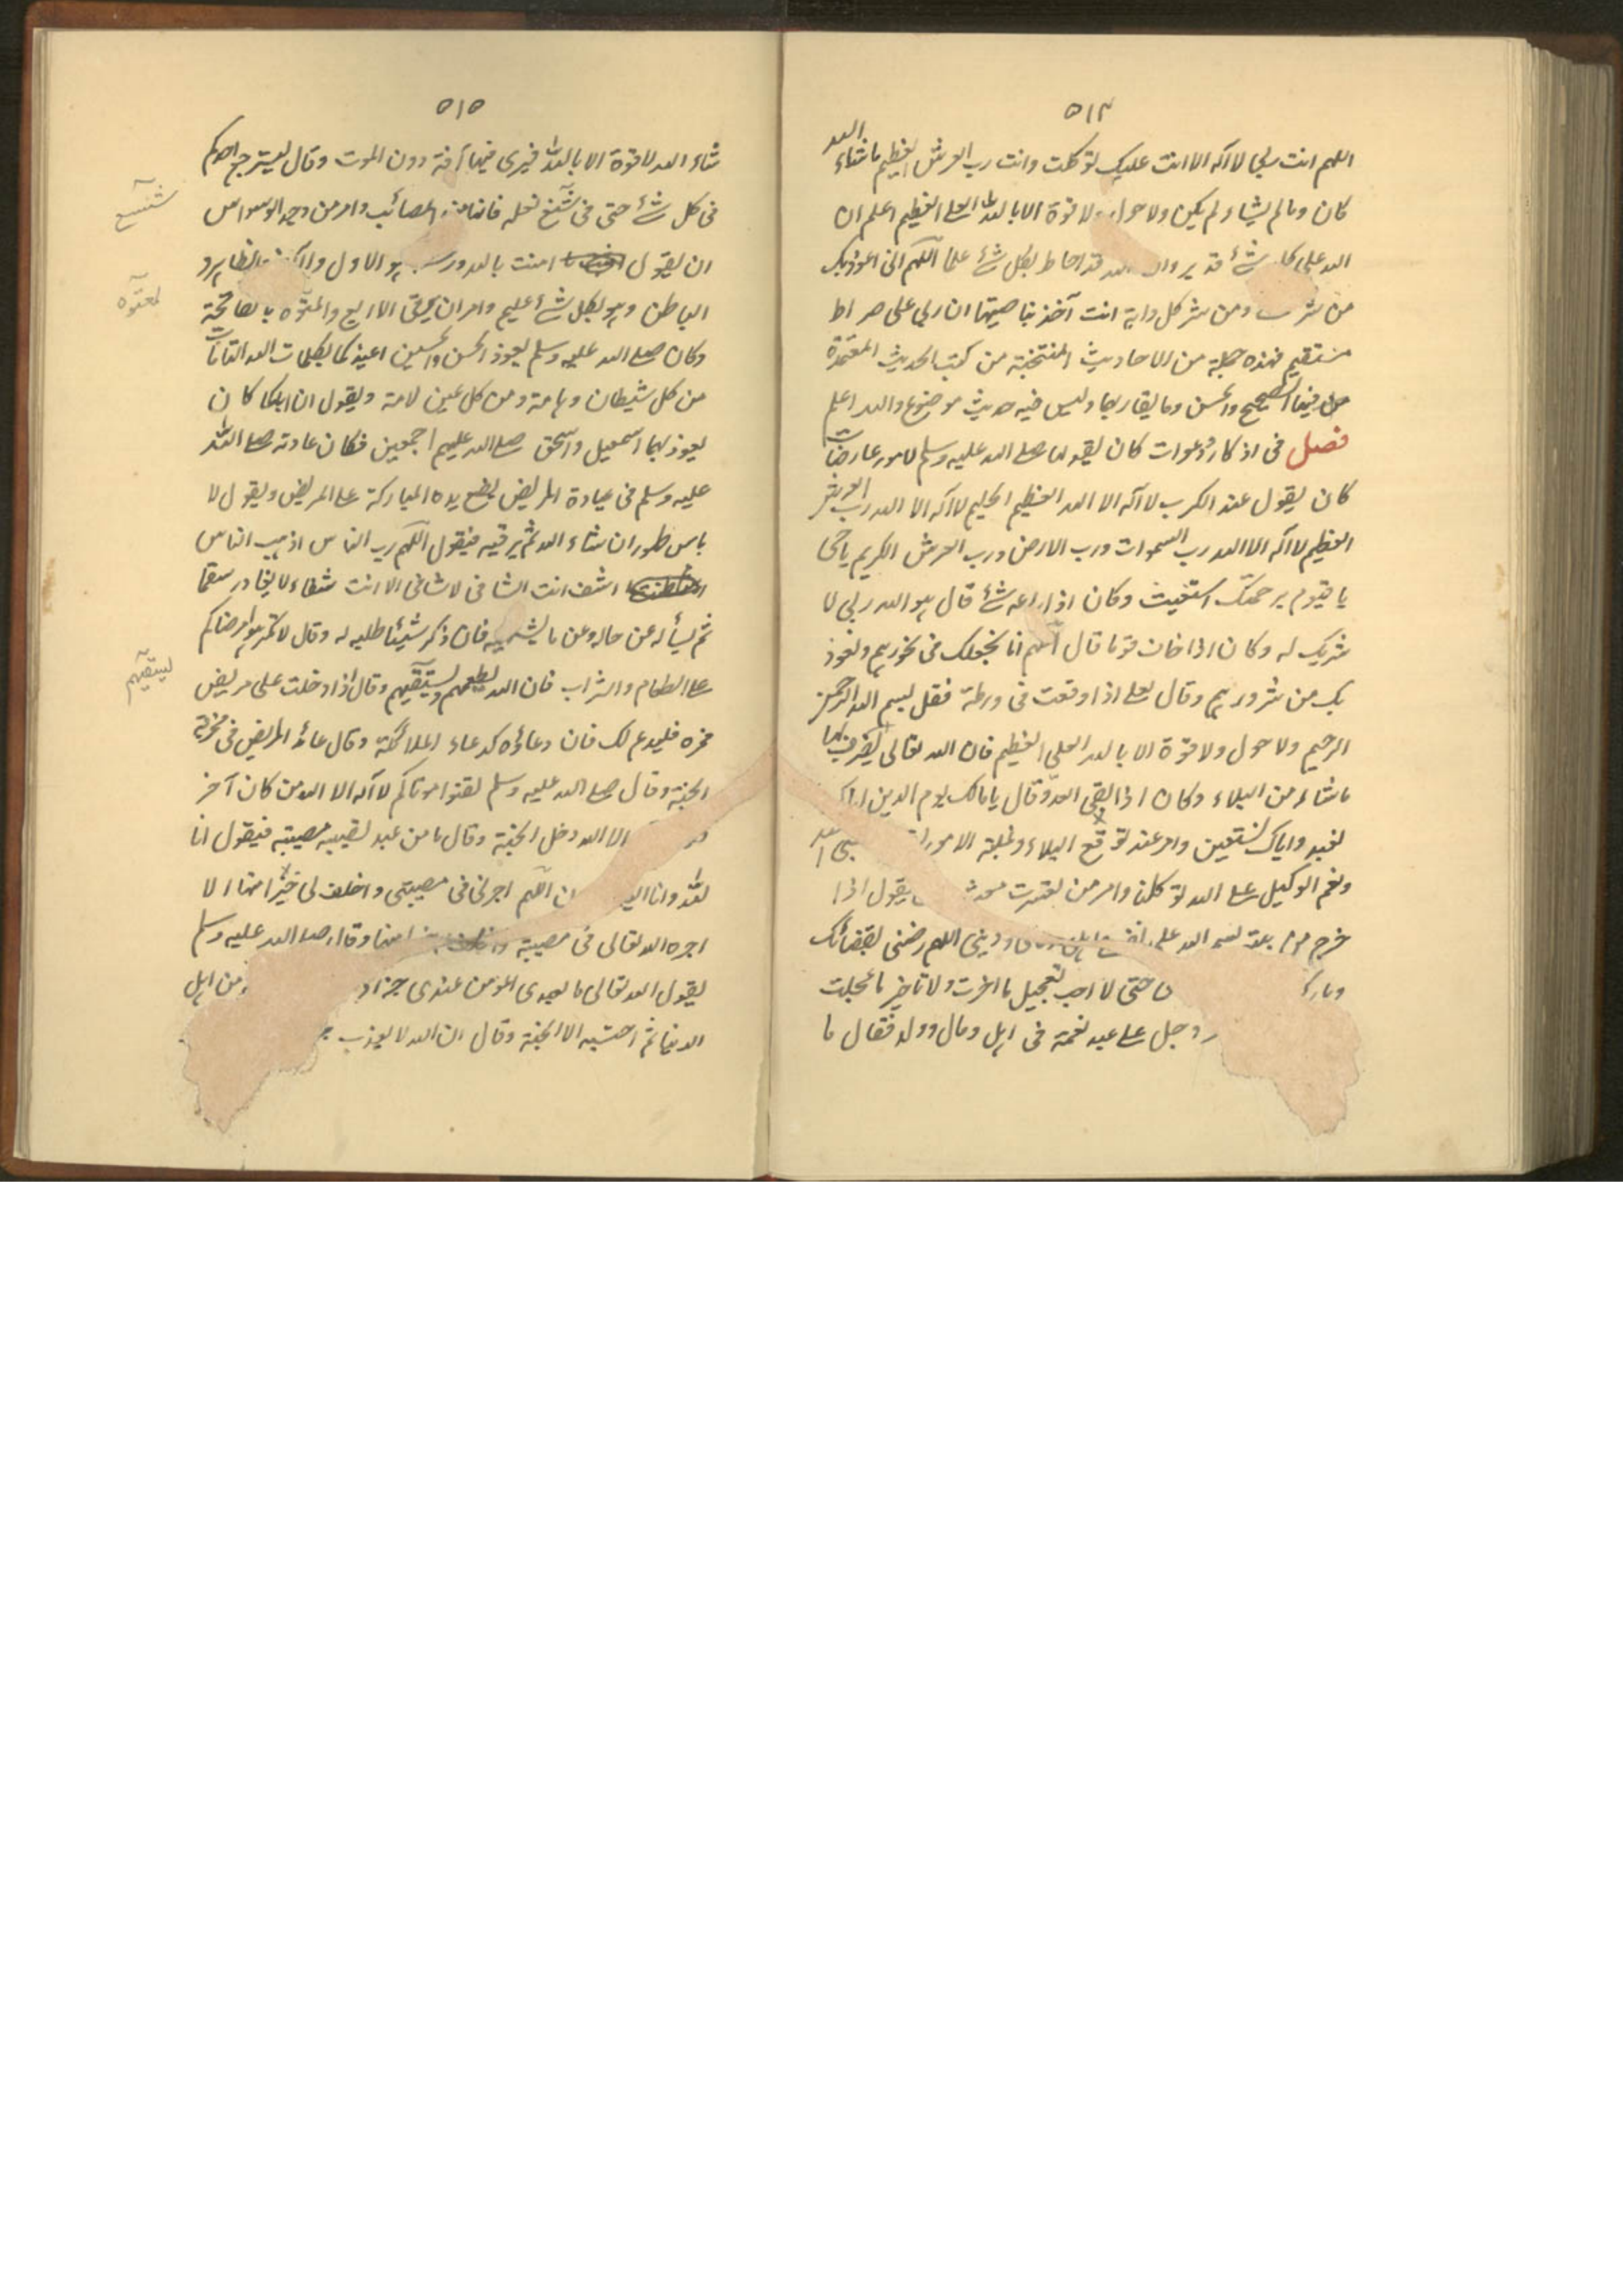 ٥١٤
اللهم انت ربي لا آله الا انت عليك توكلت وانت رب العرش العظيم ما شاء الله
كان وما لم يشاء لم يكن ولا حول ولا قوة الا بالله العلي العظيم اعلم ان
الله على كل شئ قدير وان الله قد احاط بكل شئ علما اللهم انى اعوذبك
من شر ومن شر كل دابة انت آخذ بناصيتها ان ربي على صراط
مستقيم فهذه جملة من الاحاديث المنتخبة من كتب الحديث المعتمدة
من فيها الصحيح والحسن وما يقاربها وليس فيه حديث موضوع والله اعلم
فصل فى اذكار ودعوات كان يقولها صلے الله عليه وسلم لامور عارضات
كان يقول عند الكرب لا آله الا الله العظيم الحليم لا آله الا الله رب العرش
العظيم لا آله الا الله رب السموات ورب الارض ورب العرش الكريم يا حى
يا قيوم برحمتك استغيث وكان اذا راعه شئ قال هو الله ربي لا
شريك له وكان اذا خاف قوما قال اللهم انا نجعلك فى نحورهم ونعوذ
بك من شرورهم وقال لعلے اذا وقعت فى ورطة فقل بسم الله الرحمن
الرحيم ولا حول ولا قوة الا بالله العلي العظيم فان الله تعالى يصرف بها
ما شاء من البلاء وكان اذا لقى العدو قال يا مالك يوم الدين اياك
نعبد واياك نستعين وامر عند توقع البلاء وغلبة الامور
ونعم الوكيل علے الله توكلنا وامر من تعسرت يقول اذا
خرج من بيته بسم الله على ودينى اللهم رضنى بقضائك
وبارك حتى لا احب تعجيل ما اخرت ولا تاخير ما عجلت
وجل علے عبد نعمة فى اهل ومال وولد فقال ما
٥١٥
شاء الله لا قوة الا بالله فيرى فيها آفة دون الموت وقال ليسترجع احدكم
فى كل شئ حتى فى شسع نعله فانها من المصائب وامر من وجد الوسواس
ان يقول امنت بالله ورسله هو الاول والآخر والظاهر و
الباطن وهو بكل شئ عليم وامر ان يرقى اللديغ والمعتوه بالفاتحة
وكان صلے الله عليه وسلم يعوذ الحسن والحسين اعيذكما بكلمات الله التامات
من كل شيطان وهامة ومن كل عين لامة ويقول ان اباكما كان
يعوذ بهما اسمعيل واسحق صلے الله عليهم اجمعين فكان عادته صلے الله
عليه وسلم فى عيادة المريض يضع يده المباركة علے المريض ويقول لا
باس طهور ان شاء الله ثم يرقيه فيقول اللهم رب الناس اذهب الباس
اشف انت الشافى لا شافى الا انت شفاء لا يغادر سقما
ثم يسأله عن حاله وعن ما يشتهيه فان ذكر شيئا طلبه له وقال لا تكرهوا مرضاكم
علے الطعام والشراب فان الله يطعمهم ويسقيهم وقال اذا دخلت على مريض
فمره فليدع لك فان دعائه كدعاء الملائكة وقال عائد المريض فى مخرفة
الجنة وقال صلے الله عليه وسلم لقنوا موتاكم لا آله الا الله من كان آخر
الا الله دخل الجنة وقال ما من عبد تصيبه مصيبة فيقول انا
لله وانا اليه اللهم اجرنى فى مصيبتى واخلف لى خيرا منها الا
اجره الله تعالى فى مصيبته واخلف منها وقال صلے الله عليه وسلم
يقول الله تعالى ما لعبدى المؤمن عندى جزاء من اهل
الدنيا ثم احتسبه الا الجنة وقال ان الله لا يعذب
شسع
معتوه
يسقيهم